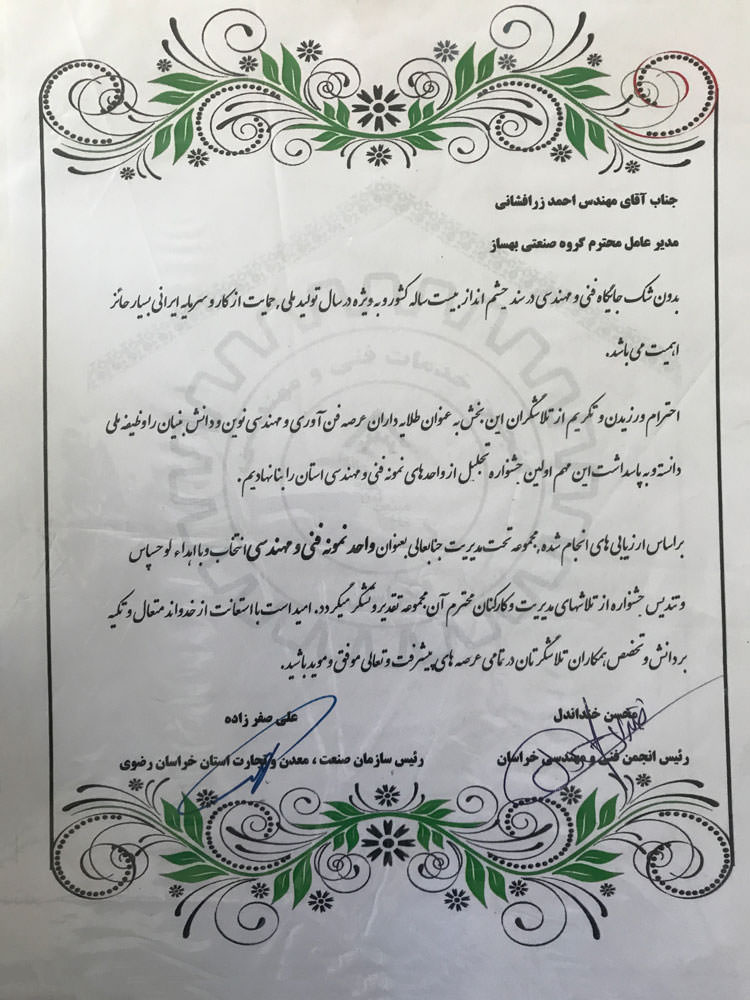 جناب آقای مهندس احمد زرافشانی
مدیر عامل محترم گروه صنعتی بهساز
بدون شک جایگاه فنی و مهندسی در سند چشم انداز بیست ساله کشور و به ویژه در سال تولید ملی، حمایت از کار و سرمایه ایرانی بسیار حائز
اهمیت می باشد.
احترام ورزیدن و تکریم از تلاشگران این بخش به عنوان طلایه داران عرصه فن آوری و مهندسی نوین و دانش بنیان را وظیفه ملی
دانسته و به پاسداشت این مهم اولین جشنواره تجلیل از واحدهای نمونه فنی و مهندسی استان را بنا نهادیم.
براساس ارزیابی های انجام شده، مجموعه تحت مدیریت جنابعالی بعنوان واحد نمونه فنی و مهندسی انتخاب و با اهداء لوح سپاس
و تندیس جشنواره از تلاشهای مدیریت و کارکنان محترم آن مجموعه تقدیر و تشکر میگردد. امید است با استعانت از خداوند متعال و تکیه
بر دانش و تخصص همکاران تلاشگرتان در تمامی عرصه های پیشرفت و تعالی موفق و موید باشید.
محسن خنداندل
رئیس انجمن فنی و مهندسی خراسان
علی صفر زاده
رئیس سازمان صنعت ، معدن و تجارت استان خراسان رضوی
خدمات فنی و